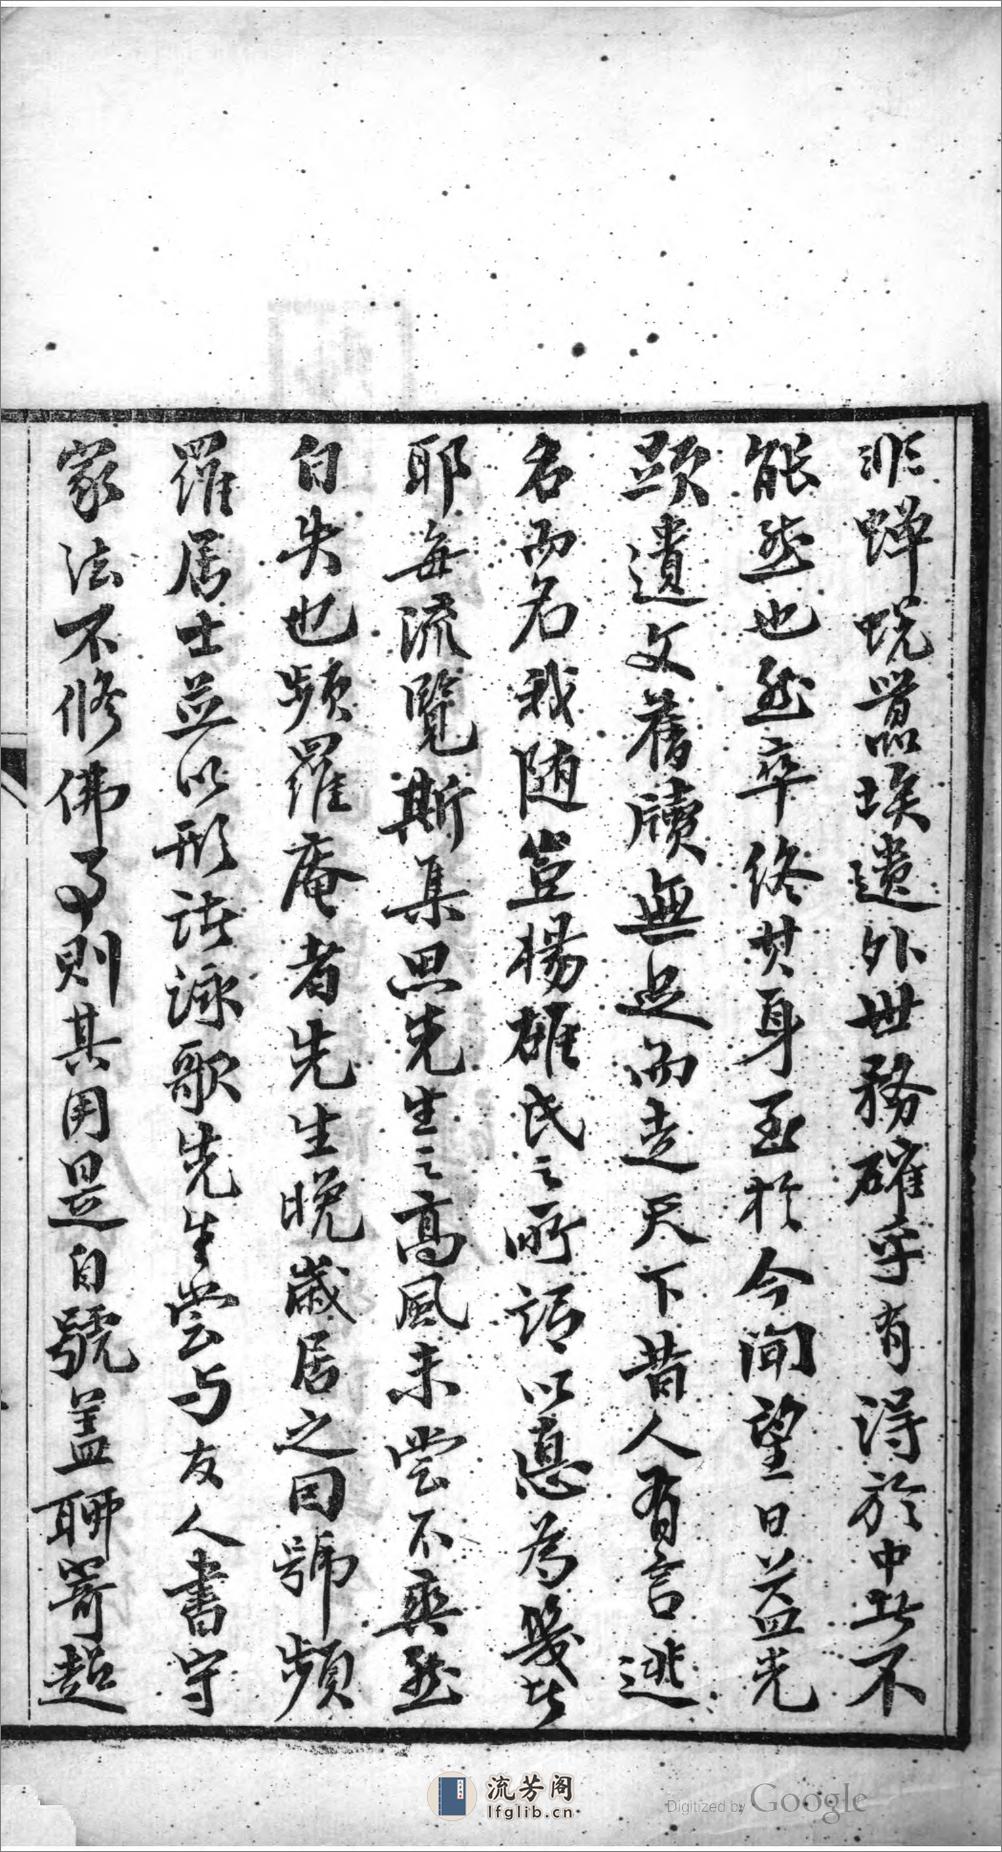 非蟬蛻囂埃遺外世務確乎有得於中者不
能然也然卒終其身至於今聞望日益光
顯遺文舊牘無足而走天下昔人有言逃
名而名我随豈楊雄氏之所謂以惪為幾者
耶每流覽斯集思先生之高風未嘗不爽然
自失也頻羅庵者先生晚歲居之因號頻
羅居士並以形諸詠歌先生嘗与友人書守
家法不修佛事則其用是自號盖聊寄超
流芳阁
lfglib.cn
Digitized by Google